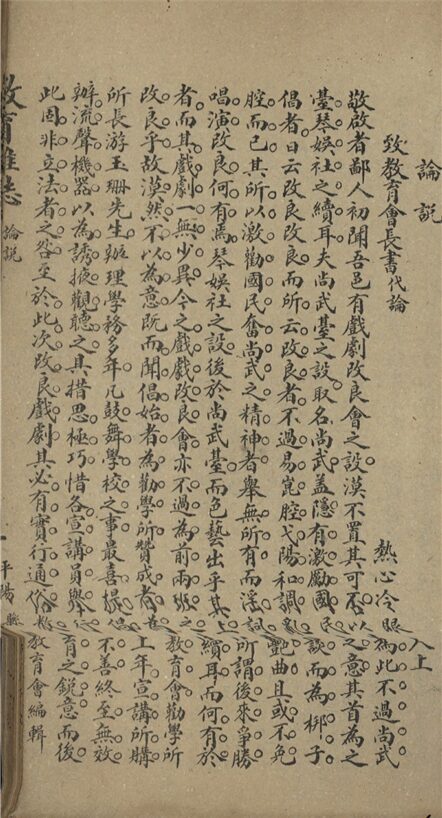 論說
致教育會長書代論　熱心冷眼人上
敬啟者鄙人初聞吾邑有戲劇改良會之設漠不置其可否以為此不過尚武
臺琴娛社之續耳夫尚武臺之設取名尚武盖隱有激勵國民之意其首為之
倡者日云改良改良而所云改良者不過易崑腔弋陽和調亂談而為梆子
腔而已其所以激勸國民奮尚武之精神者舉無所有而淫詞艷曲且或不免
唱演改良何有焉琴娛社之設後於尚武臺而色藝出乎其上所謂後來爭勝
者而其戲劇一無少異今之戲劇改良會亦不過為前兩班之續耳而何有於
改良乎故漠然不以為意既而聞倡始者為勸學所贊成者為教育會勸學所
所長游玉珊先生辦理學務多年凡鼓舞學校之事最喜提倡上年宣講所購
辦流聲機器以為誘掖觀聽之具措思極巧惜各宣講員舉不善終至無效
此固非立法者之咎至於此次改良戲劇其必有實行通俗教育之銳意而後
教育雜志　論說　一　平陽縣教育會編輯